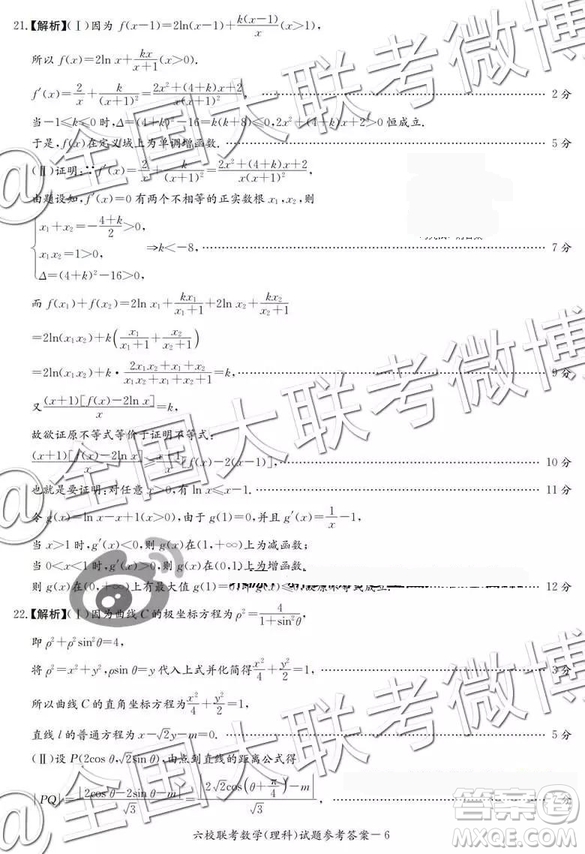 21.【解析】(Ⅰ)因为 f(x−1)=2ln(x−1)+k(x−1)/x(x>1),
所以 f(x)=2ln x+kx/(x+1)(x>0).
f′(x)=2/x+k/(x+1)²=(2x²+(4+k)x+2)/(x(x+1)²), 2分
当−1≤k≤0时,Δ=(4+k)²−16=k(k+8)≤0,2x²+(4+k)x+2>0恒成立.
于是,f(x)在定义域上为单调增函数. 5分
(Ⅱ)证明:∵f′(x)=2/x+k/(x+1)²=(2x²+(4+k)x+2)/(x(x+1)²),
由题设知,f′(x)=0有两个不相等的正实数根x₁,x₂,则
{x₁+x₂=−(4+k)/2>0,
x₁x₂=1>0, ⇒k<−8, 7分
Δ=(4+k)²−16>0,
而 f(x₁)+f(x₂)=2ln x₁+kx₁/(x₁+1)+2ln x₂+kx₂/(x₂+1)
=2ln(x₁x₂)+k(x₁/(x₁+1)+x₂/(x₂+1))
=2ln(x₁x₂)+k·(2x₁x₂+x₁+x₂)/(x₁x₂+x₁+x₂+1)=k, 9分
又(x+1)[f(x)−2ln x]/x=k,
故欲证原不等式等价于证明不等式:
(x+1)[f(x)−2ln x]/x [f(x)−2(x−1)], 10分
也就是要证明:对任意x>0,有ln x≤x−1. 11分
令g(x)=ln x−x+1(x>0),由于g(1)=0,并且g′(x)=1/x−1,
当x>1时,g′(x)<0,则g(x)在(1,+∞)上为减函数;
当0<x<1时,g′(x)>0,则g(x)在 上为增函数.
则g(x)在(0,+∞)上有最大值g(1)= 不等式成立. 12分
22.【解析】(Ⅰ)因为曲线C的极坐标方程为ρ²=4/(1+sin²θ),
即ρ²+ρ²sin²θ=4,
将ρ²=x²+y²,ρsin θ=y代入上式并化简得x²/4+y²/2=1, 3分
所以曲线C的直角坐标方程为x²/4+y²/2=1,
直线l的普通方程为x−√2y−m=0. 5分
(Ⅱ)设P(2cos θ,√2sin θ),由点到直线的距离公式得
|PQ|=|2cos θ−2sin θ−m|/√3=|2√2cos(θ+π/4)−m|/√3, 分
六校联考数学(理科)试题参考答案−6
@全国大联考微博
@全国大联考微博